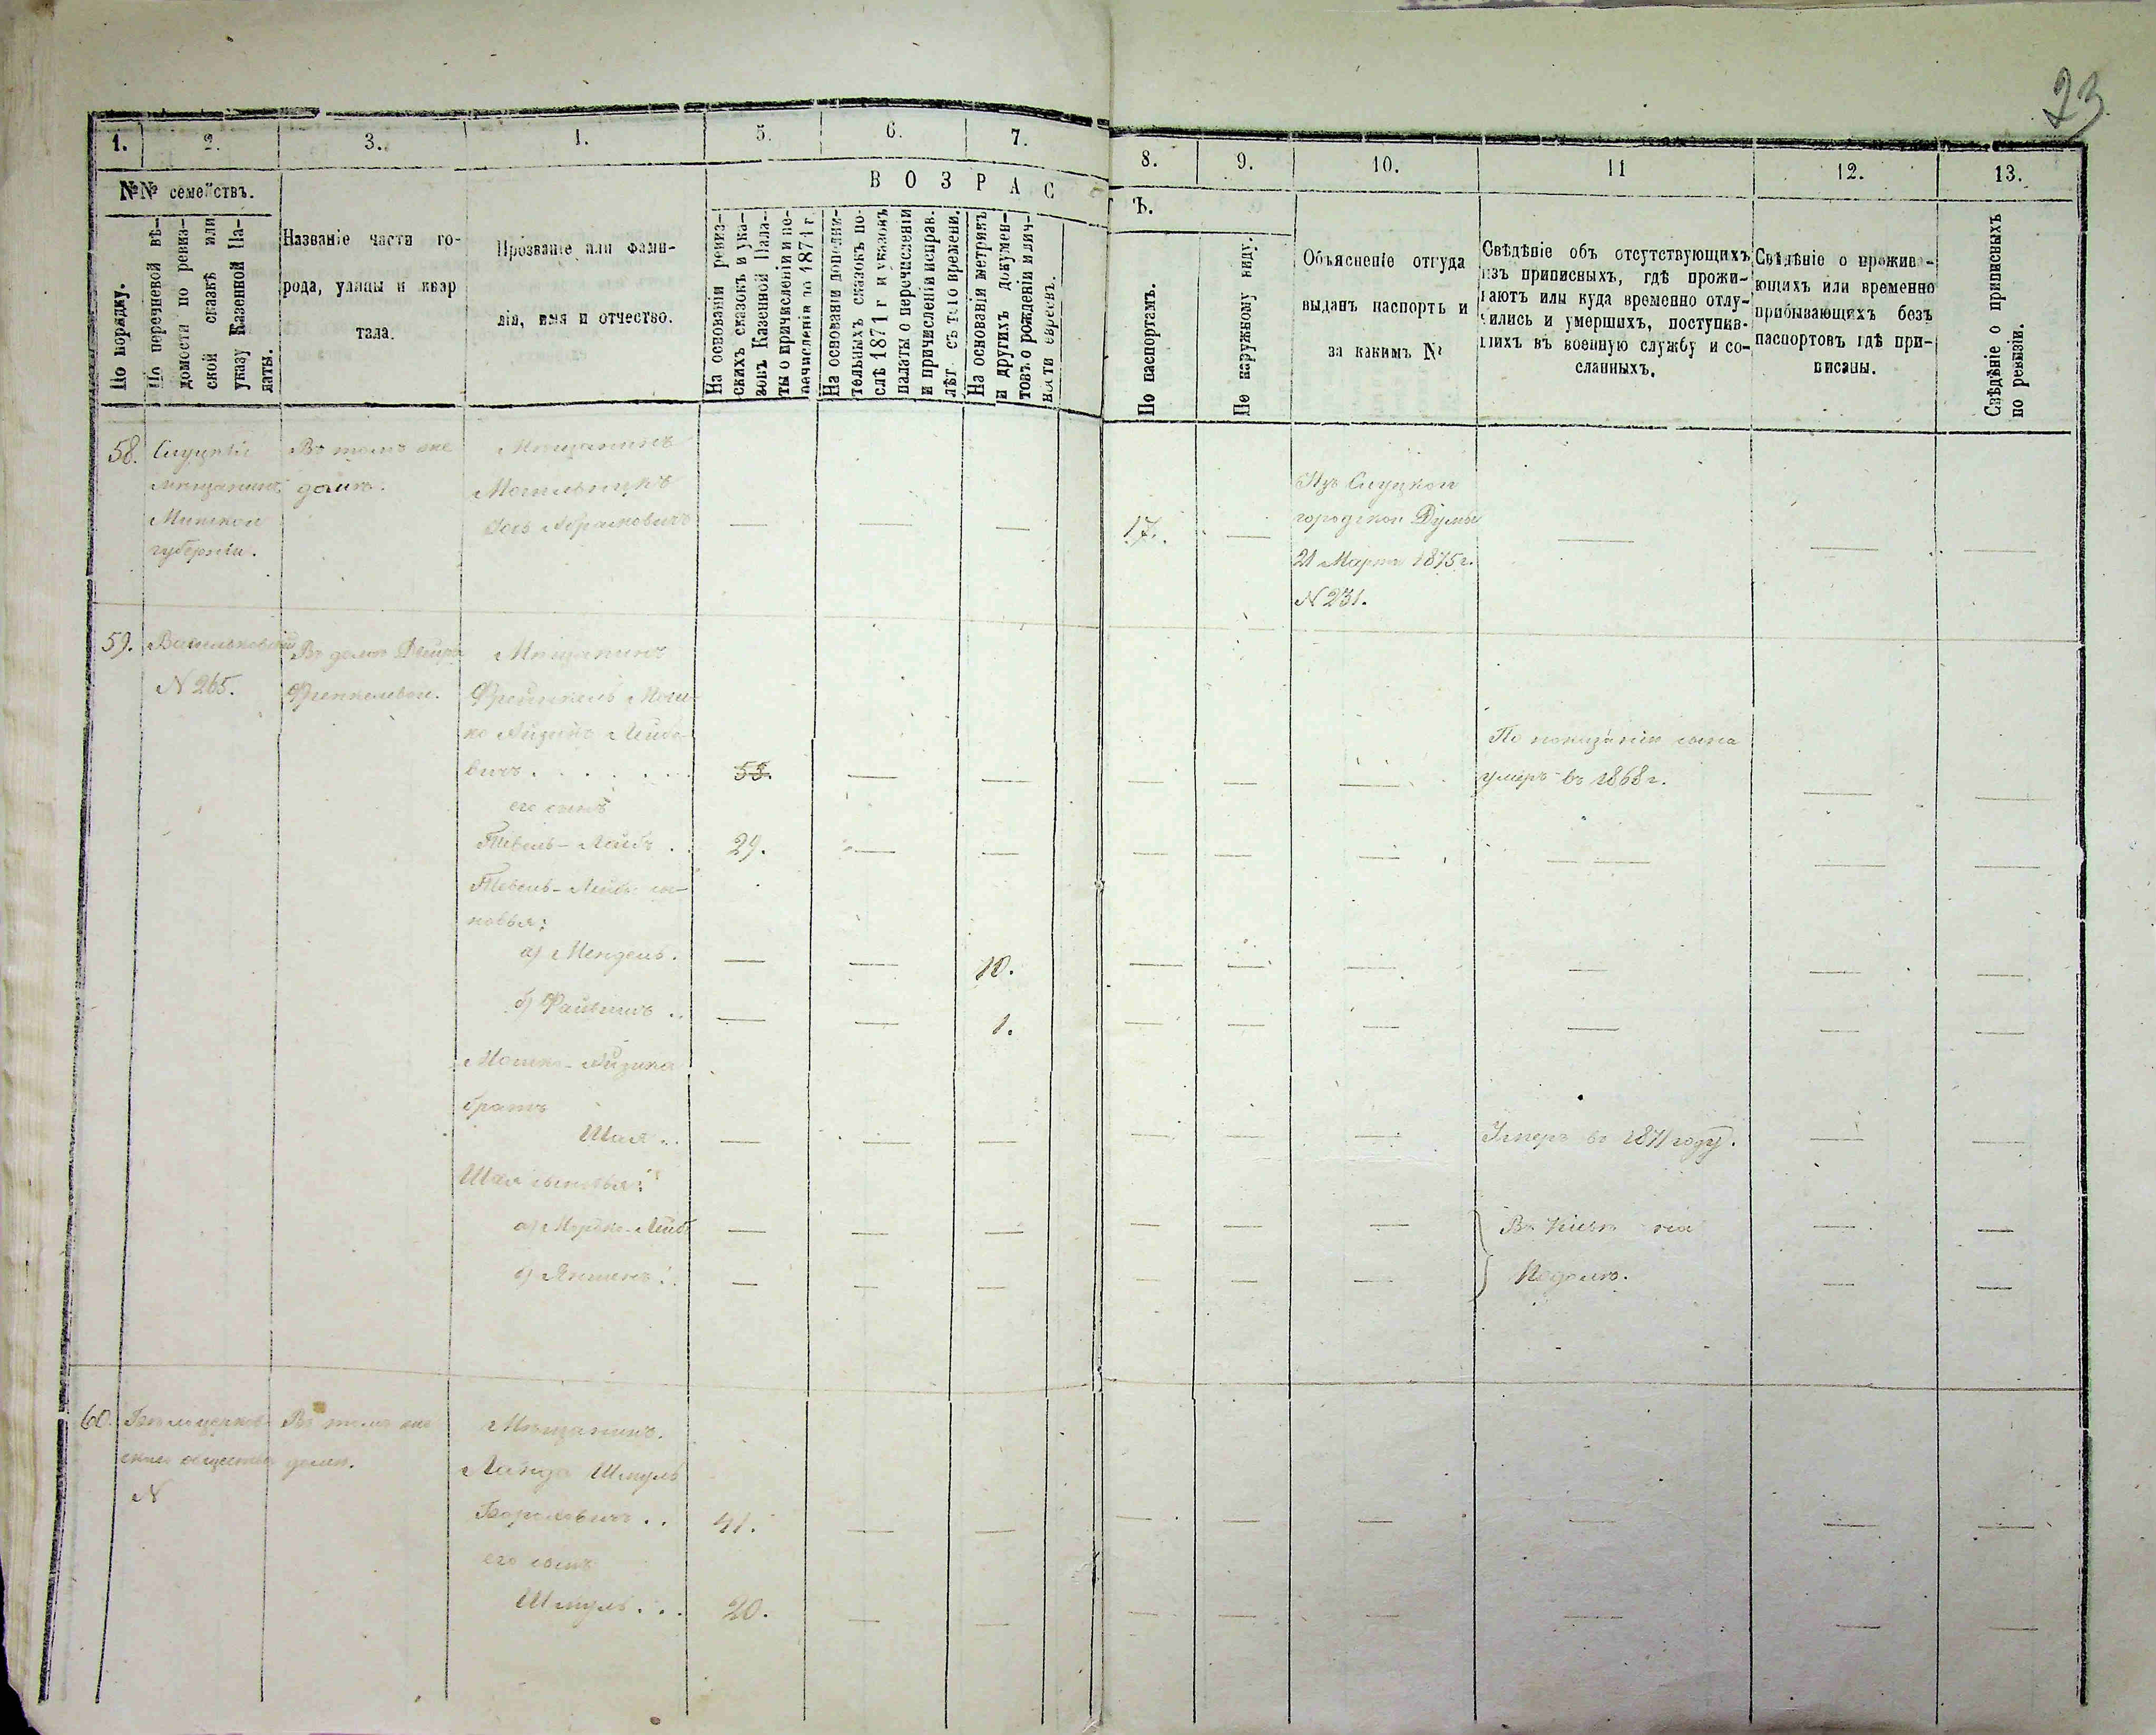 23
1.
2.
3.
4.
5.
6.
7.
8.
9.
10.
11
12.
13.
№№ семействъ.
По порядку.
По перечневой вѣ-
домости по ревиз-
ской сказкѣ или
указу Казенной Па-
латы.
Названіе части го-
рода, улицы и квар
тала.
Прозваніе или фами-
лія, имя и отчество.
ВОЗРАС
Ъ.
На основаніи ревиз-
скихъ сказокъ и ука-
зовъ Казенной Пала-
ты о причисленіи и пе-
речисленіи до 1871 г.
На основаніи дополни-
тельныхъ сказокъ по-
слѣ 1871 г. и указовъ
палаты о перечисленіи
и причисленіи исправ.
лѣт съ того времени.
На основаніи метрикъ
и другихъ докумен-
товъ о рожденіи и лич-
ности евреевъ.
По паспортамъ.
По наружному виду.
Объясненіе откуда
выданъ паспортъ и
за какимъ №
Свѣдѣніе объ отсутствующихъ
изъ приписныхъ, гдѣ прожи-
ваютъ или куда временно отлу-
чились и умершихъ, поступив-
шихъ въ военную службу и со-
сланныхъ.
Свѣдѣніе о прожива-
ющихъ или временно
прибывающихъ безъ
паспортовъ гдѣ при-
писаны.
Свѣдѣніе о приписныхъ
по ревизіи.
58.
Слуцкій
мѣщанинъ
Минской
губерніи.
Въ томъ же
домѣ.
Мѣщанинъ
Абрамовичъ
17.
Изъ Слуцкой
городской Думы
21 Марта 1875 г.
N 231.
59.
Васильковскій
N 265.
Въ домѣ
Френкелевой.
Мѣщанинъ
Френкель Мош-
ко Айзикъ Лейбо-
вичъ
53.
По показанію сына
умеръ въ 1868 г.
его сынъ
Тевель-Лейбъ
29.
Тевель-Лейба сы-
новья:
а) Мендель.
10.
б) Файвишъ
1.
Мошко-Айзика
братъ
Шая
Умеръ въ 1871 году.
Шаи сыновья:
а) Мордко-Лейбъ
б)
Въ Кіевѣ на
Подолѣ.
60.
Бѣлоцерков-
скаго общества
N
Въ томъ же
домѣ.
Мѣщанинъ.
Ланда Шмуль
41.
его сынъ
Шмуль
20.